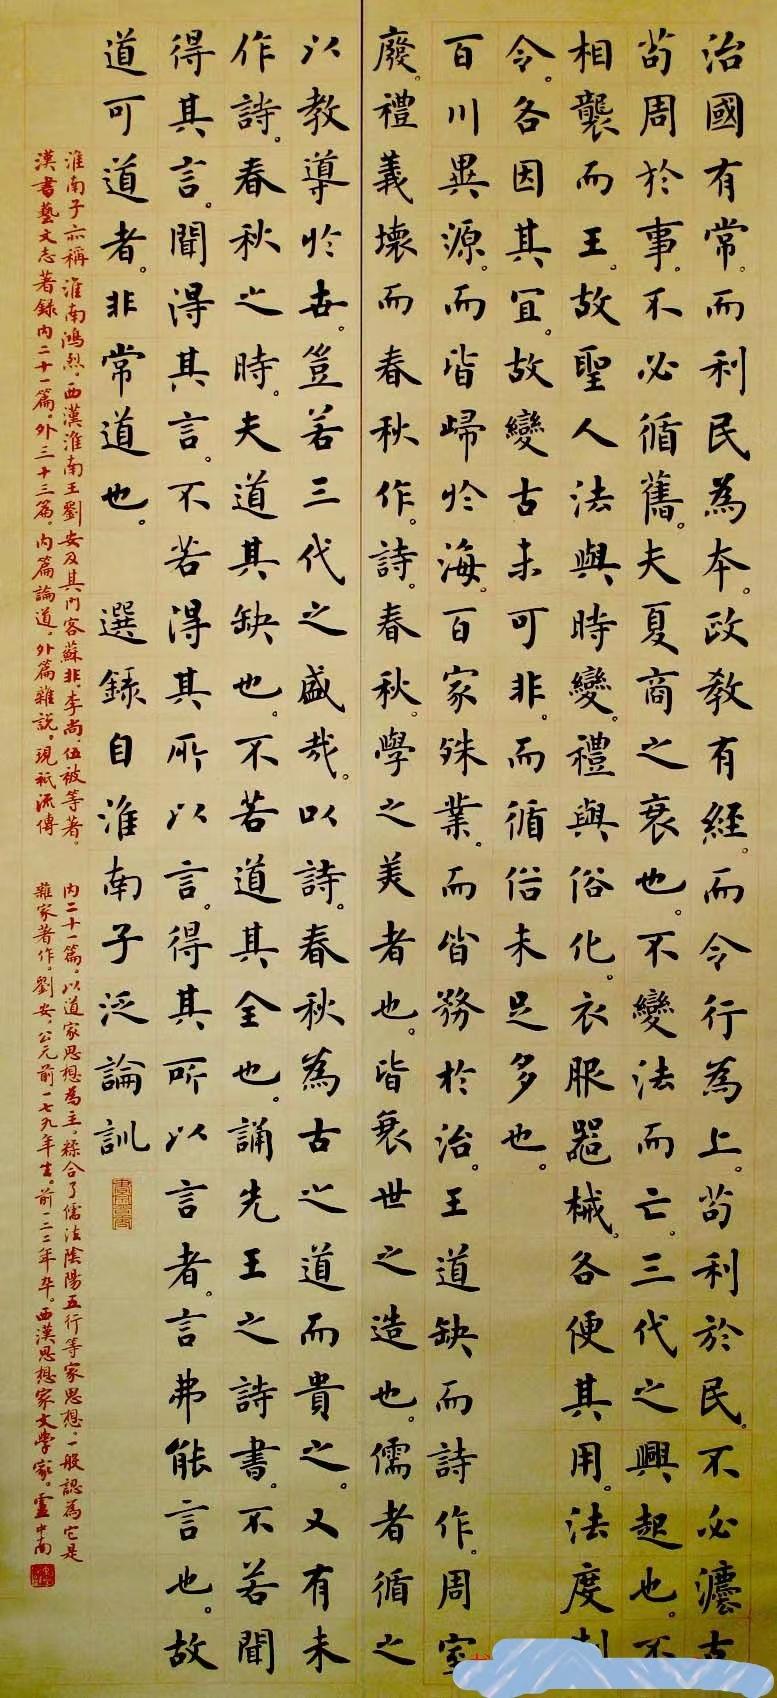 治國有常。而利民為本。政教有經。而令行為上。苟利於民。不必灋古
苟周於事。不必循舊。夫夏商之衰也。不變法而亡。三代之興起也。不
相襲而王。故聖人法與時變。禮與俗化。衣服器械。各便其用。法度制
令。各因其宜。故變古未可非。而循俗未足多也。
百川異源。而皆歸於海。百家殊業。而皆務於治。王道缺而詩作。周室
廢。禮義壞而春秋作。詩。春秋。學之美者也。皆衰世之造也。儒者循之
以教導於世。豈若三代之盛哉。以詩。春秋為古之道而貴之。又有未
作詩。春秋之時。夫道其缺也。不若道其全也。誦先王之詩書。不若聞
得其言。聞得其言。不若得其所以言。得其所以言者。言弗能言也。故
道可道者。非常道也。 選錄自淮南子泛論訓
淮南子亦稱淮南鴻烈。西漢淮南王劉安及其門客蘇非。李尚。伍被等著。
漢書藝文志著錄內二十一篇。外三十三篇。內篇論道。外篇雜說。現祇流傳
內二十一篇。以道家思想為主。糅合了儒法陰陽五行等家思想。一般認為它是
雜家著作。劉安。公元前一七九年生。前一二二年卒。西漢思想家文學家。盧中南